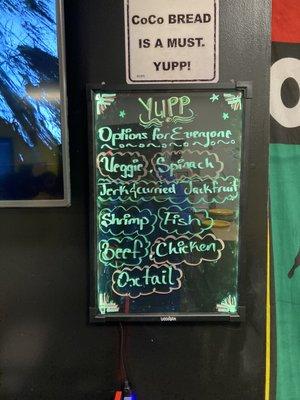 CoCo BREAD
IS A MUST.
YUPP!
YUPP
Options for Everyone
Veggie Spinach
Jerk & Curried Jackfruit
Shrimp Fish
Beef Chicken
Oxtail